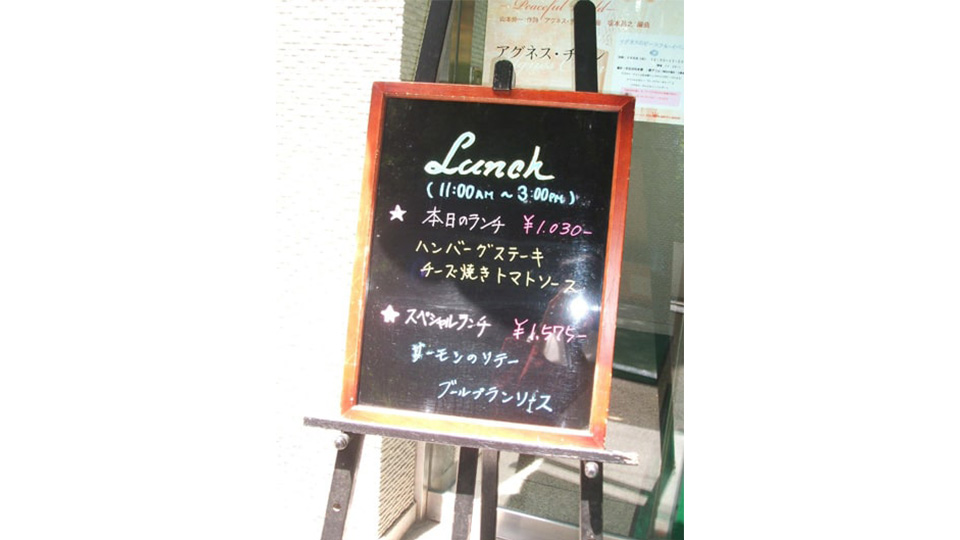 アグネス・チャン
Lunch
(11:00AM ~ 3:00PM)
★ 本日のランチ ¥1.030-
ハンバーグステーキ
チーズ焼きトマトソース
★ スペシャルランチ ¥1.575-
サーモンのソテー
ブールブランソース